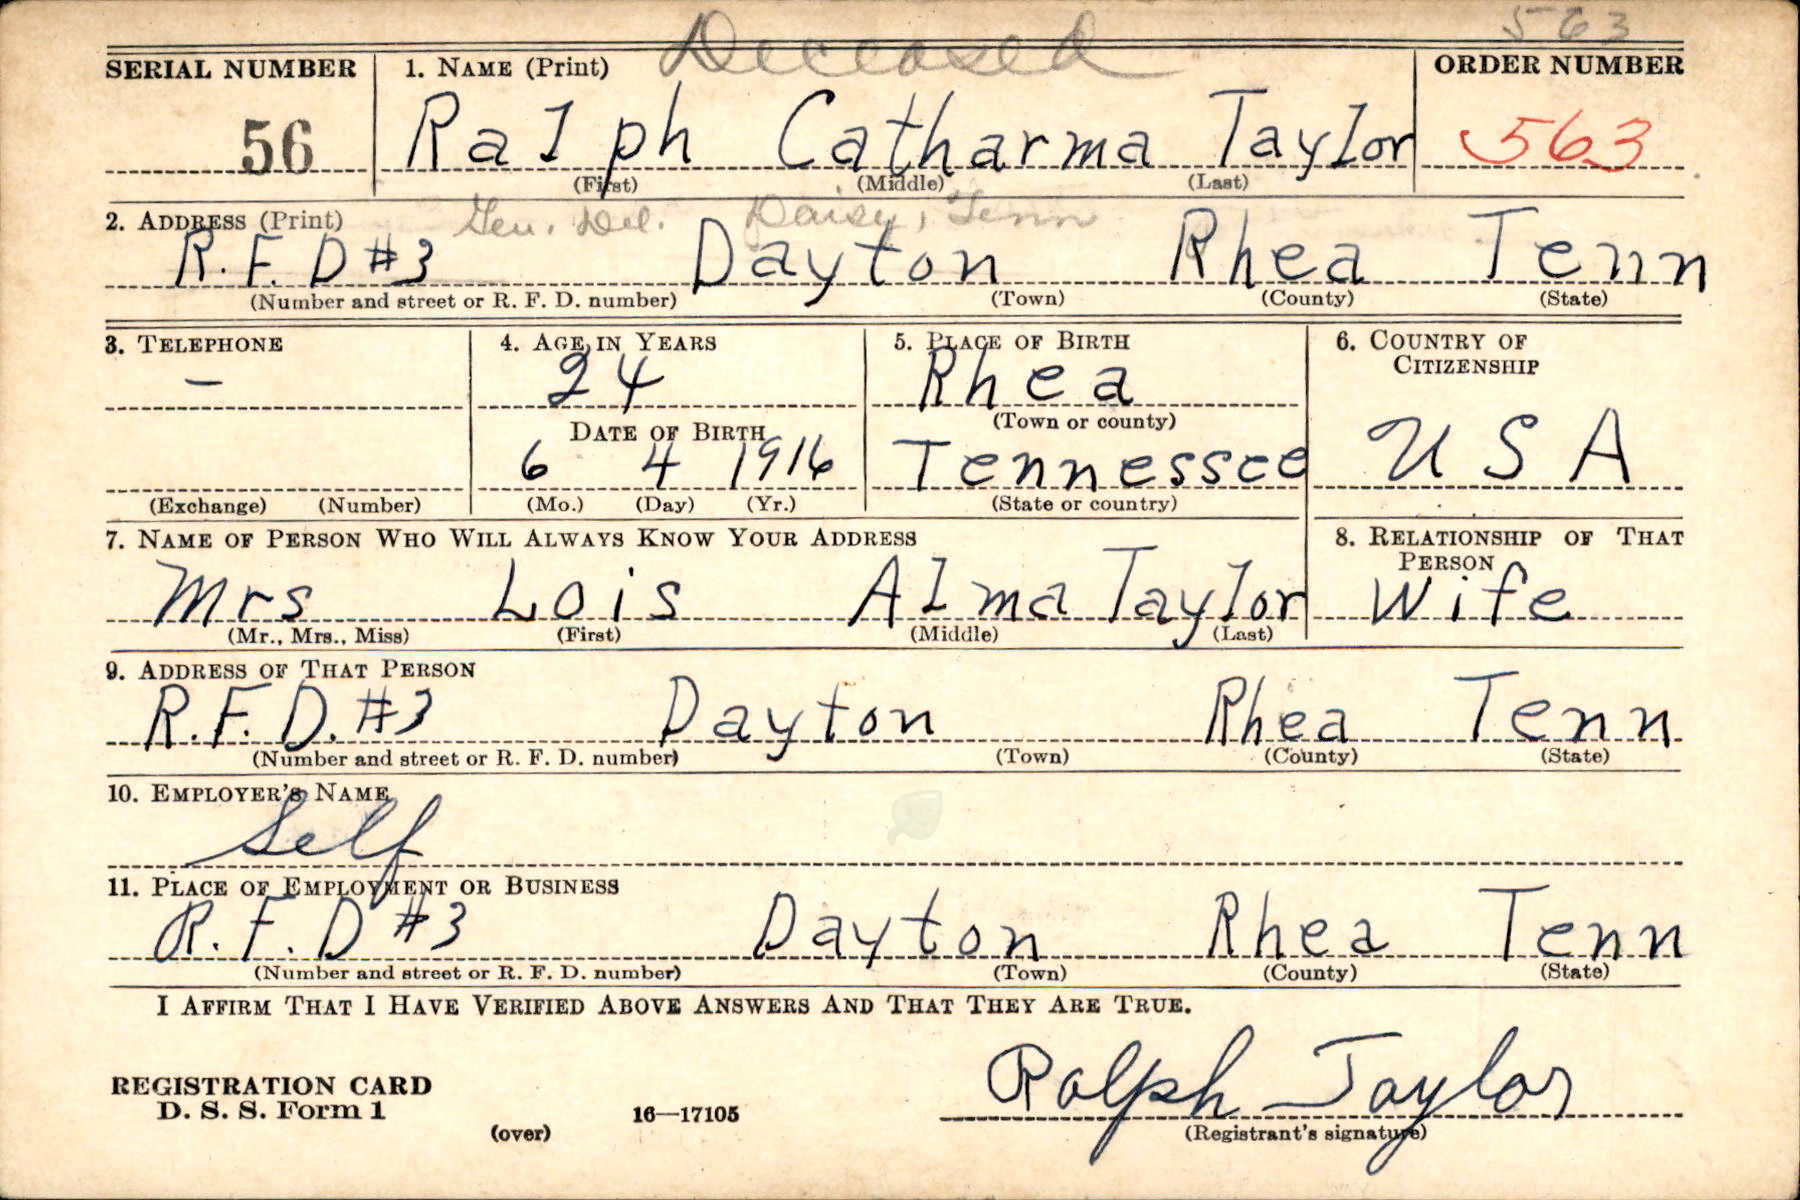 Deceased 563
SERIAL NUMBER 1. NAME (Print) ORDER NUMBER
56 Ralph Catharma Taylor 563
(First) (Middle) (Last)
2. ADDRESS (Print) Gen. Del. Daisy, Tenn
R.F.D #3 Dayton Rhea Tenn
(Number and street or R. F. D. number) (Town) (County) (State)
3. TELEPHONE 4. AGE IN YEARS 5. PLACE OF BIRTH 6. COUNTRY OF
CITIZENSHIP
– 24 Rhea
(Town or county)
DATE OF BIRTH
6 4 1916 Tennessee USA
(Exchange) (Number) (Mo.) (Day) (Yr.) (State or country)
7. NAME OF PERSON WHO WILL ALWAYS KNOW YOUR ADDRESS 8. RELATIONSHIP OF THAT
PERSON
Mrs Lois Alma Taylor Wife
(Mr., Mrs., Miss) (First) (Middle) (Last)
9. ADDRESS OF THAT PERSON
R.F.D. #3 Dayton Rhea Tenn
(Number and street or R. F. D. number) (Town) (County) (State)
10. EMPLOYER'S NAME
Self
11. PLACE OF EMPLOYMENT OR BUSINESS
R.F.D #3 Dayton Rhea Tenn
(Number and street or R. F. D. number) (Town) (County) (State)
I AFFIRM THAT I HAVE VERIFIED ABOVE ANSWERS AND THAT THEY ARE TRUE.
REGISTRATION CARD Ralph Taylor
D. S. S. Form 1 16—17105
(over) (Registrant's signature)